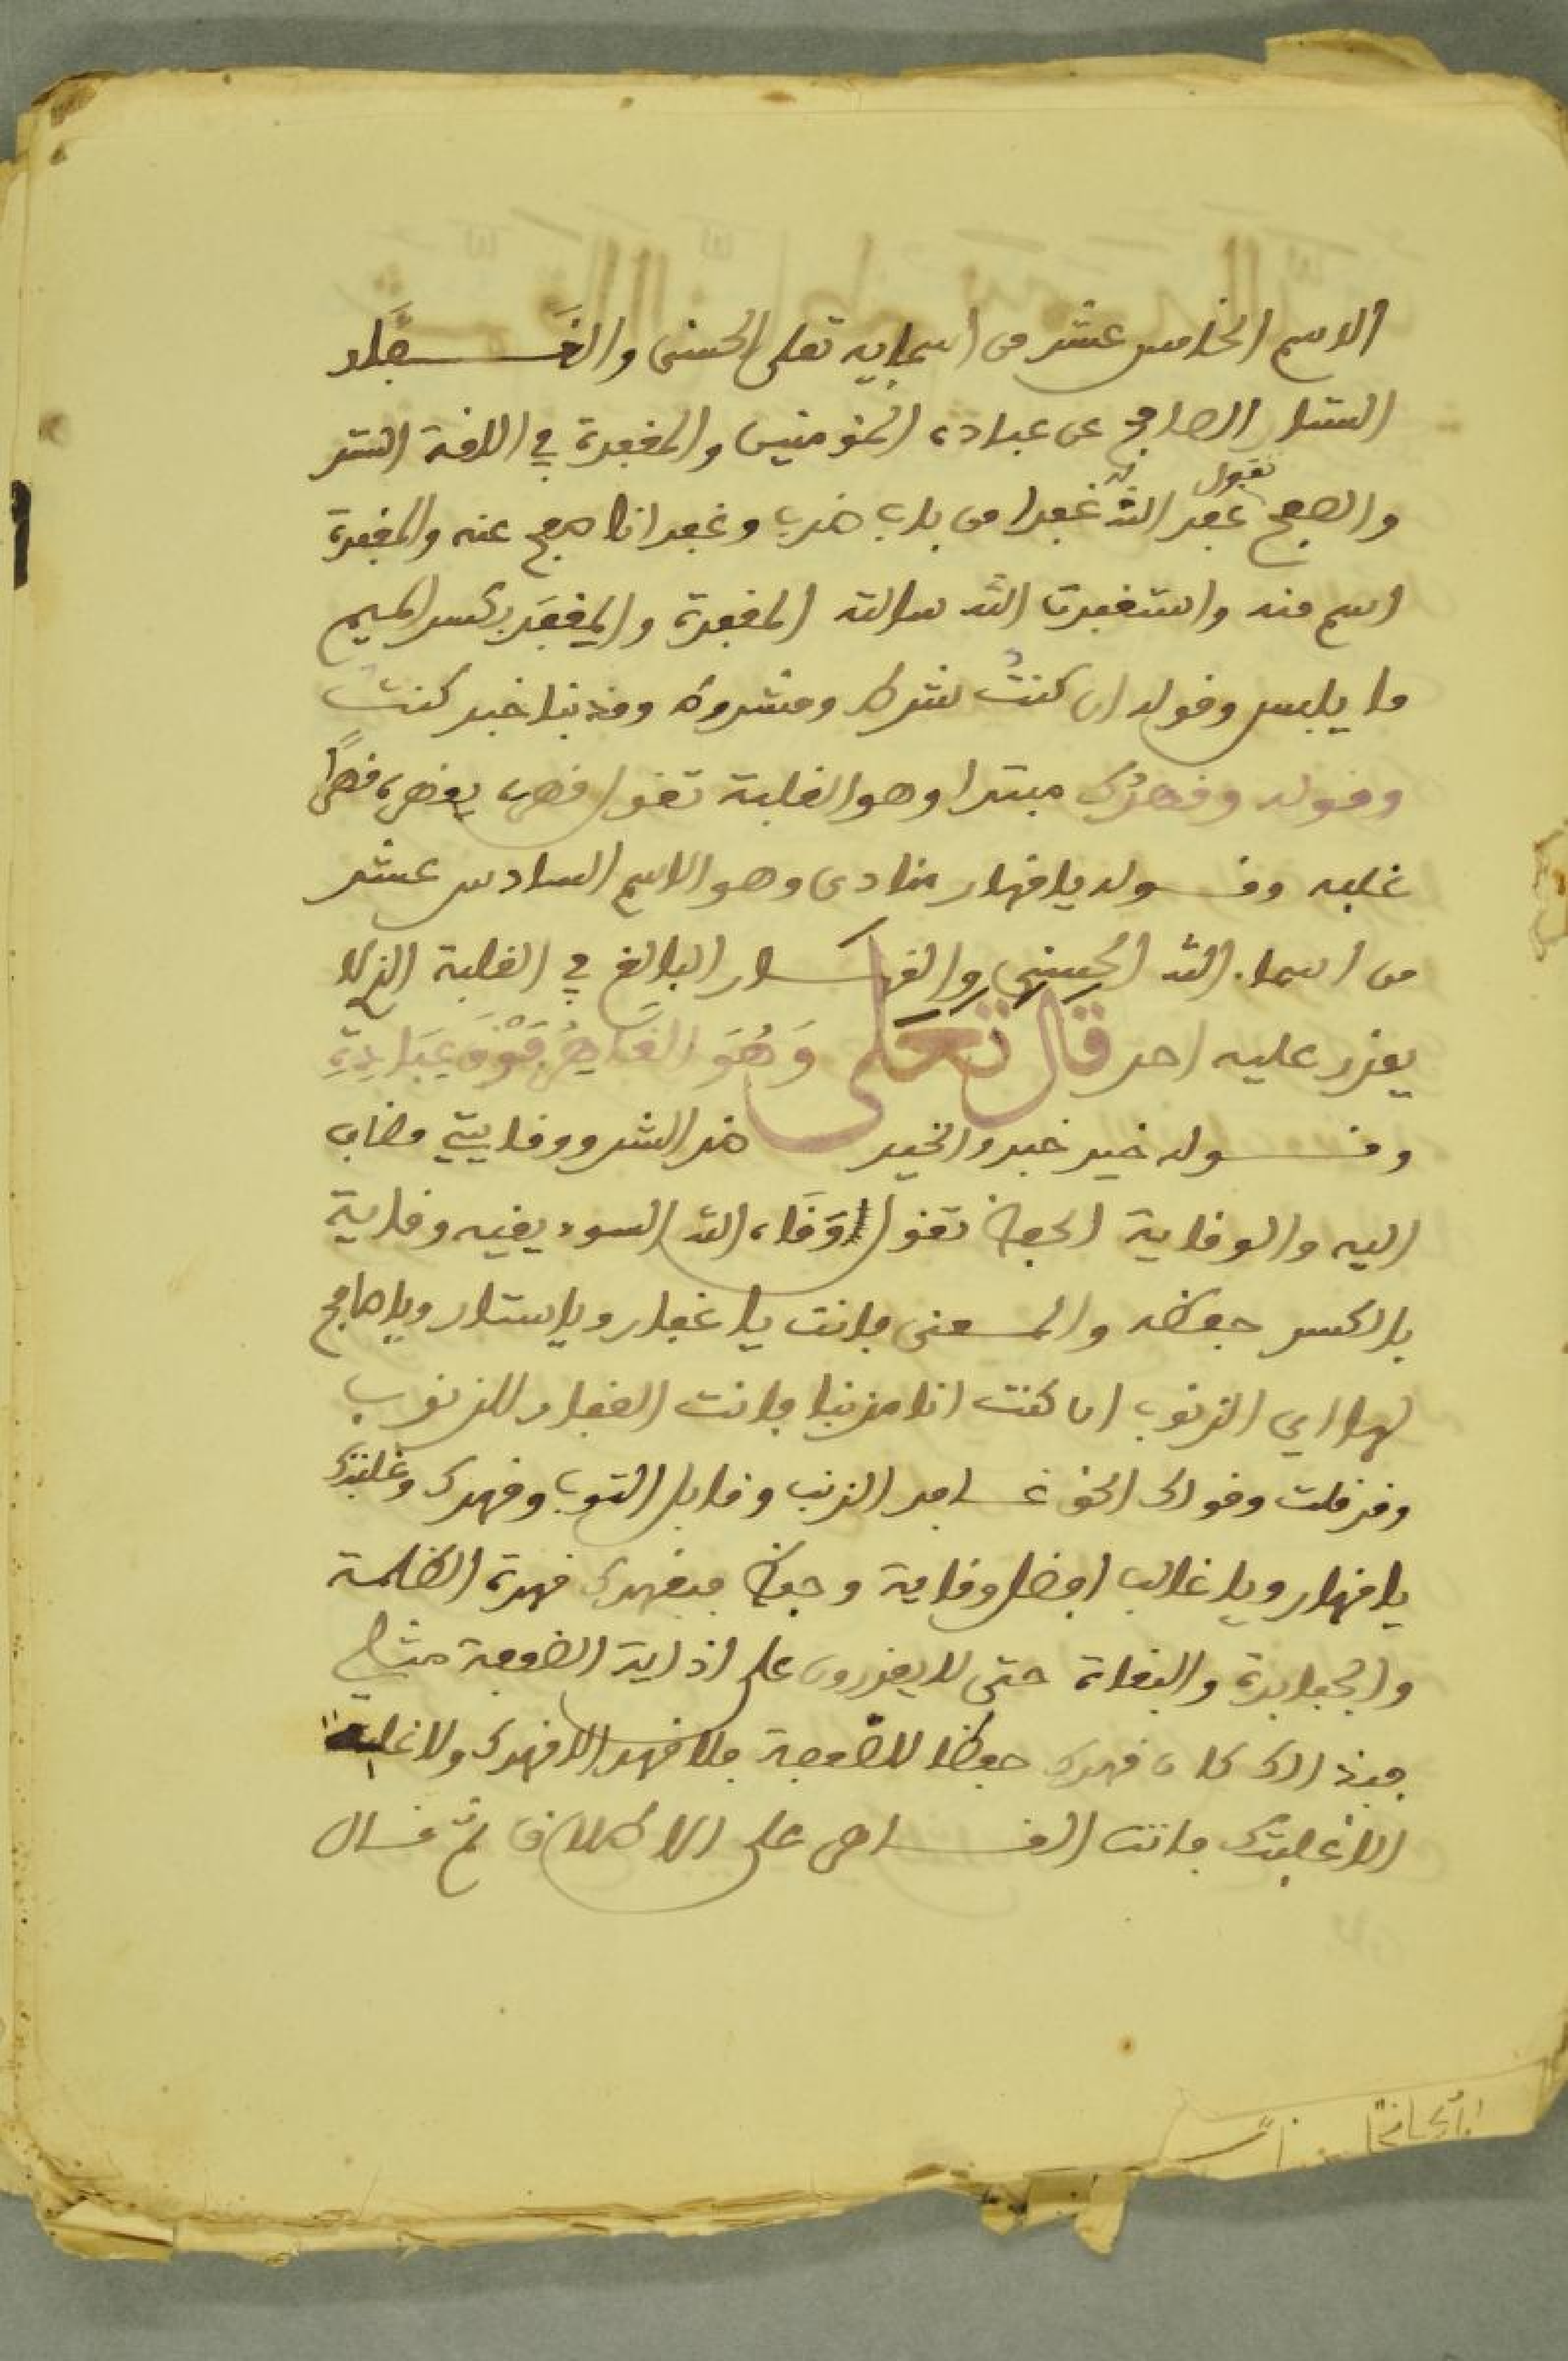 الاسم الخامس عشر من اسمايه تعلى الحسنى والغَـــفَّار
الستار الصافح عن عباده المومنين والمغفرة في اللغة الستر
والصفح تقول غفر الله له غفرا من باب ضرب وغفرانا صفح عنه والمغفرة
اسم منه واستغفرت الله سالته المغفرة والمِغفَر بكسر الميم
ما يلبس وقوله ان كنتُ شرط ومشروط ومذنبا خبر كنتُ
وقوله وقهرُك مبتدا وهو الغلبة تقول قهره يقهره قهرًا
غلبه وقـــوله يا قهار منادى وهو الاسم السادس عشر
من اسماء الله الحسنى والقهـــار البالغ في الغلبة الذي لا
يقدر عليه احد قال تعلى وَهُوَ القَاهِرُ فَوْقَ عِبَادِهِ
وقـــوله خير خبر والخير ضد الشر ووقايتي مضاف
اليه والوقاية الحفظ تقول وَقَاه الله السوء يقيه وقاية
بالكسر حفظه والمـعنى فانت يا غفار ويا ستار ويا صافح
لها اي الذنوب ان كنت انا مذنبا فانت الغفار للذنوب
وقد قلت وقولك الحق غـــافر الذنب وقابل التوب وقهرك وغلبتك
يا قهار ويا غالب افضل وقاية وحفظ فبقهرك قهرة الظلمة
والجبابرة والبغاة حتى لا يقدرون على اذاية الضعفة مثلي
فبذالك كان قهرك حفظا للضعفة فلا قهر الا قهرك ولا غلبة
الا غلبتك فانت القـــاهر على الاطلاق ثم قـــال